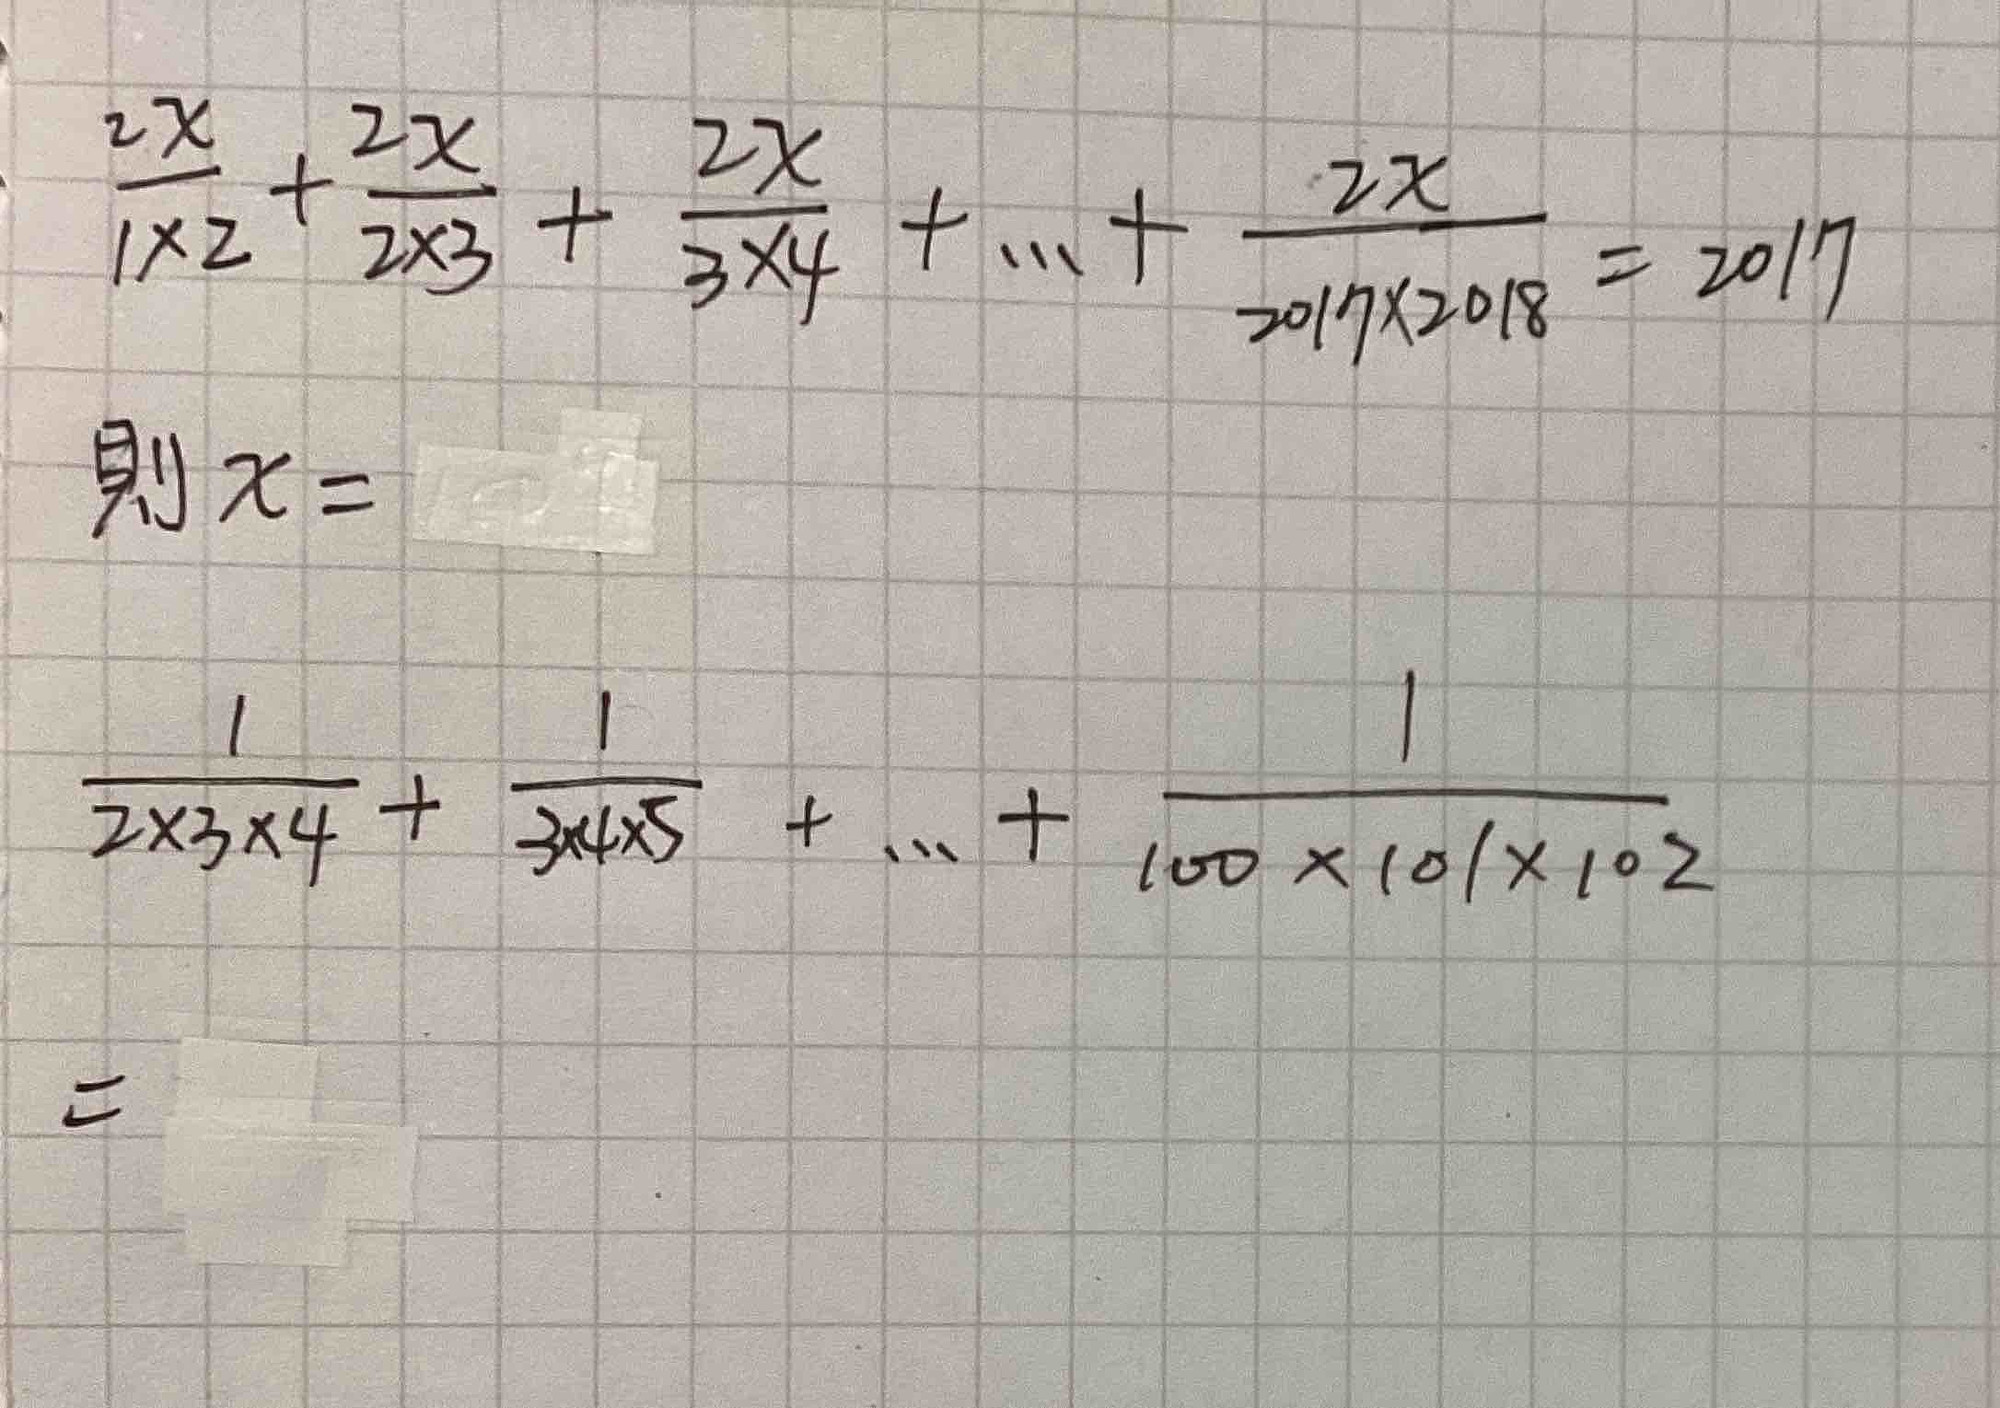 2x/1×2 + 2x/2×3 + 2x/3×4 + ... + 2x/2017×2018 = 2017
則 x =
1/2×3×4 + 1/3×4×5 + ... + 1/100×101×102
=